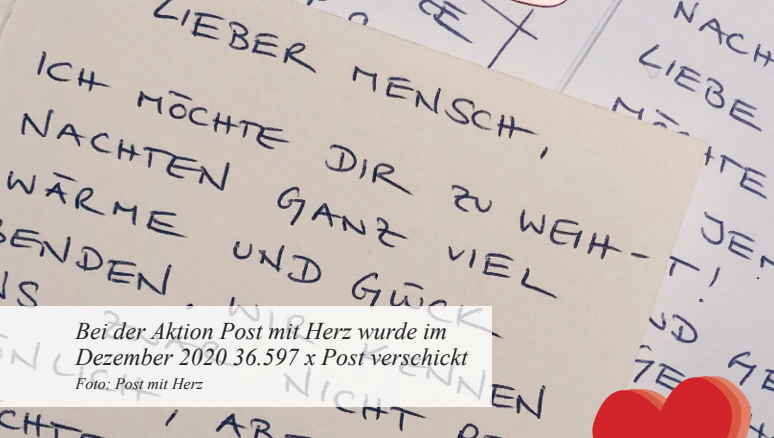 LIEBER MENSCH,
ICH MÖCHTE DIR ZU WEIH-
NACHTEN GANZ VIEL
WÄRME UND GÜCK
ENDEN. WIR KENNEN
NS ZWAR
NLICH NICHT
ABE
NACH
LIEBE
MÖCHTE
JEM
T!
ND GE
GE
Bei der Aktion Post mit Herz wurde im
Dezember 2020 36.597 x Post verschickt
Foto: Post mit Herz